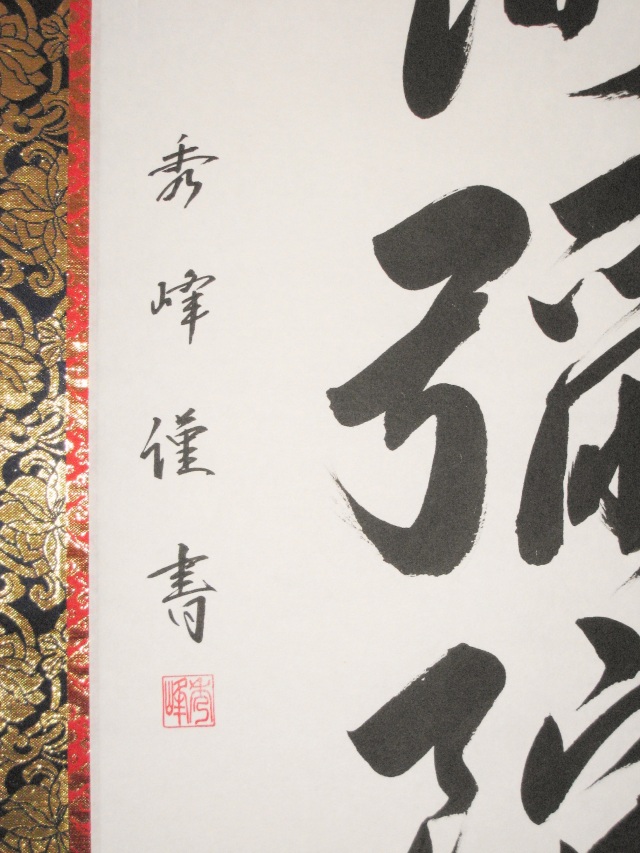 彌陀
秀峰謹書
秀峰